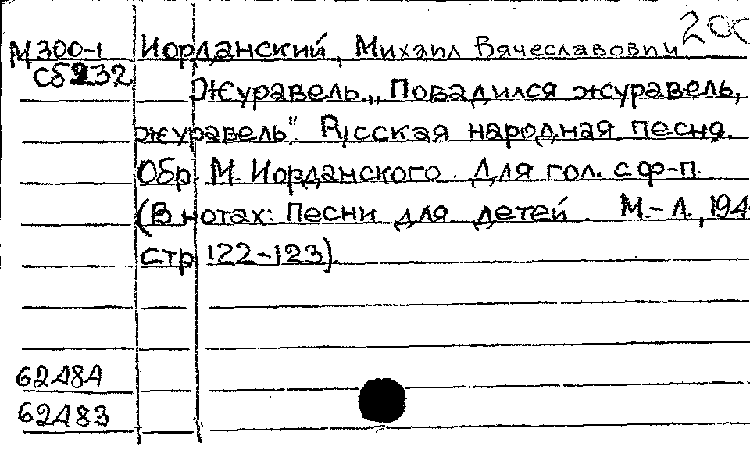 200
М300-1 Иорданский, Михаил Вячеславович
Сб232
Журавель. „Повадился журавель,
журавель". Русская народная песня.
Обр. М. Иорданского. Для гол. с ф-п.
(В нотах: Песни для детей. М.-Л., 194
стр. 122-123).
62484
62483